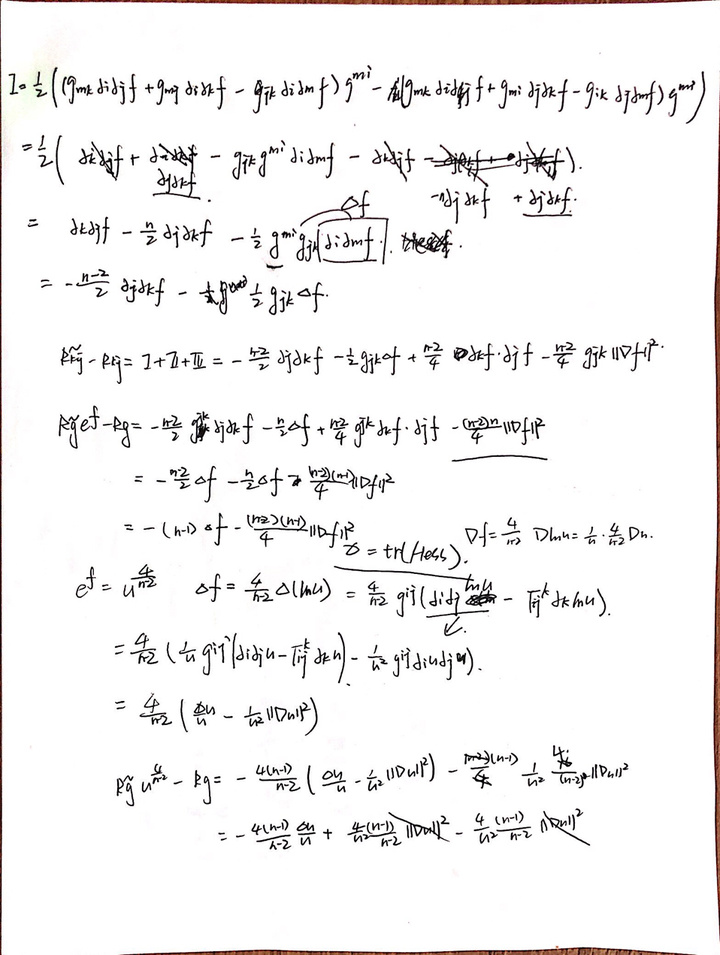 I = 1/2 ( (g_{mk} ∂i∂jf + g_{mj} ∂i∂kf − g_{jk} ∂i∂mf) g^{mi} − (g_{mk} ∂i∂jf + g_{mi} ∂j∂kf − g_{ik} ∂j∂mf) g^{mi} )
= 1/2 ( ∂k∂jf + ∂j∂kf − g_{jk} g^{mi} ∂i∂mf − ∂k∂jf − n∂j∂kf + ∂j∂kf ).
= ∂k∂jf − n/2 ∂j∂kf − 1/2 g^{mi} g_{jk} ∂i∂mf. Δf
= − (n-2)/2 ∂j∂kf − 1/2 g_{jk} Δf.
R̃_{kj} − R_{kj} = I + II + III = − (n-2)/2 ∂j∂kf − 1/2 g_{jk} Δf + (n-2)/4 ∂kf·∂jf − (n-2)/4 g_{jk} ||∇f||².
R_{g̃} e^f − R_g = − (n-2)/2 g^{jk} ∂j∂kf − n/2 Δf + (n-2)/4 g^{jk} ∂kf·∂jf − (n-2)n/4 ||∇f||²
= − (n-2)/2 Δf − n/2 Δf − (n-2)(n-1)/4 ||∇f||²
= − (n-1) Δf − (n-2)(n-1)/4 ||∇f||² ∇f = 4/(n-2) ∇lnu = 1/u · 4/(n-2) ∇u.
Δ = tr(Hess).
e^f = u^{4/(n-2)} Δf = 4/(n-2) Δ(lnu) = 4/(n-2) g^{ij} (∂i∂j lnu − Γ_{ij}^k ∂k lnu).
= 4/(n-2) ( 1/u g^{ij} (∂i∂ju − Γ_{ij}^k ∂ku) − 1/u² g^{ij} ∂iu∂ju ).
= 4/(n-2) ( Δu/u − 1/u² ||∇u||² )
R_{g̃} u^{4/(n-2)} − R_g = − 4(n-1)/(n-2) ( Δu/u − 1/u² ||∇u||² ) − (n-2)(n-1)/4 1/u² 4²/(n-2)² ||∇u||²
= − 4(n-1)/(n-2) Δu/u + 4/u² (n-1)/(n-2) ||∇u||² − 4/u² (n-1)/(n-2) ||∇u||²